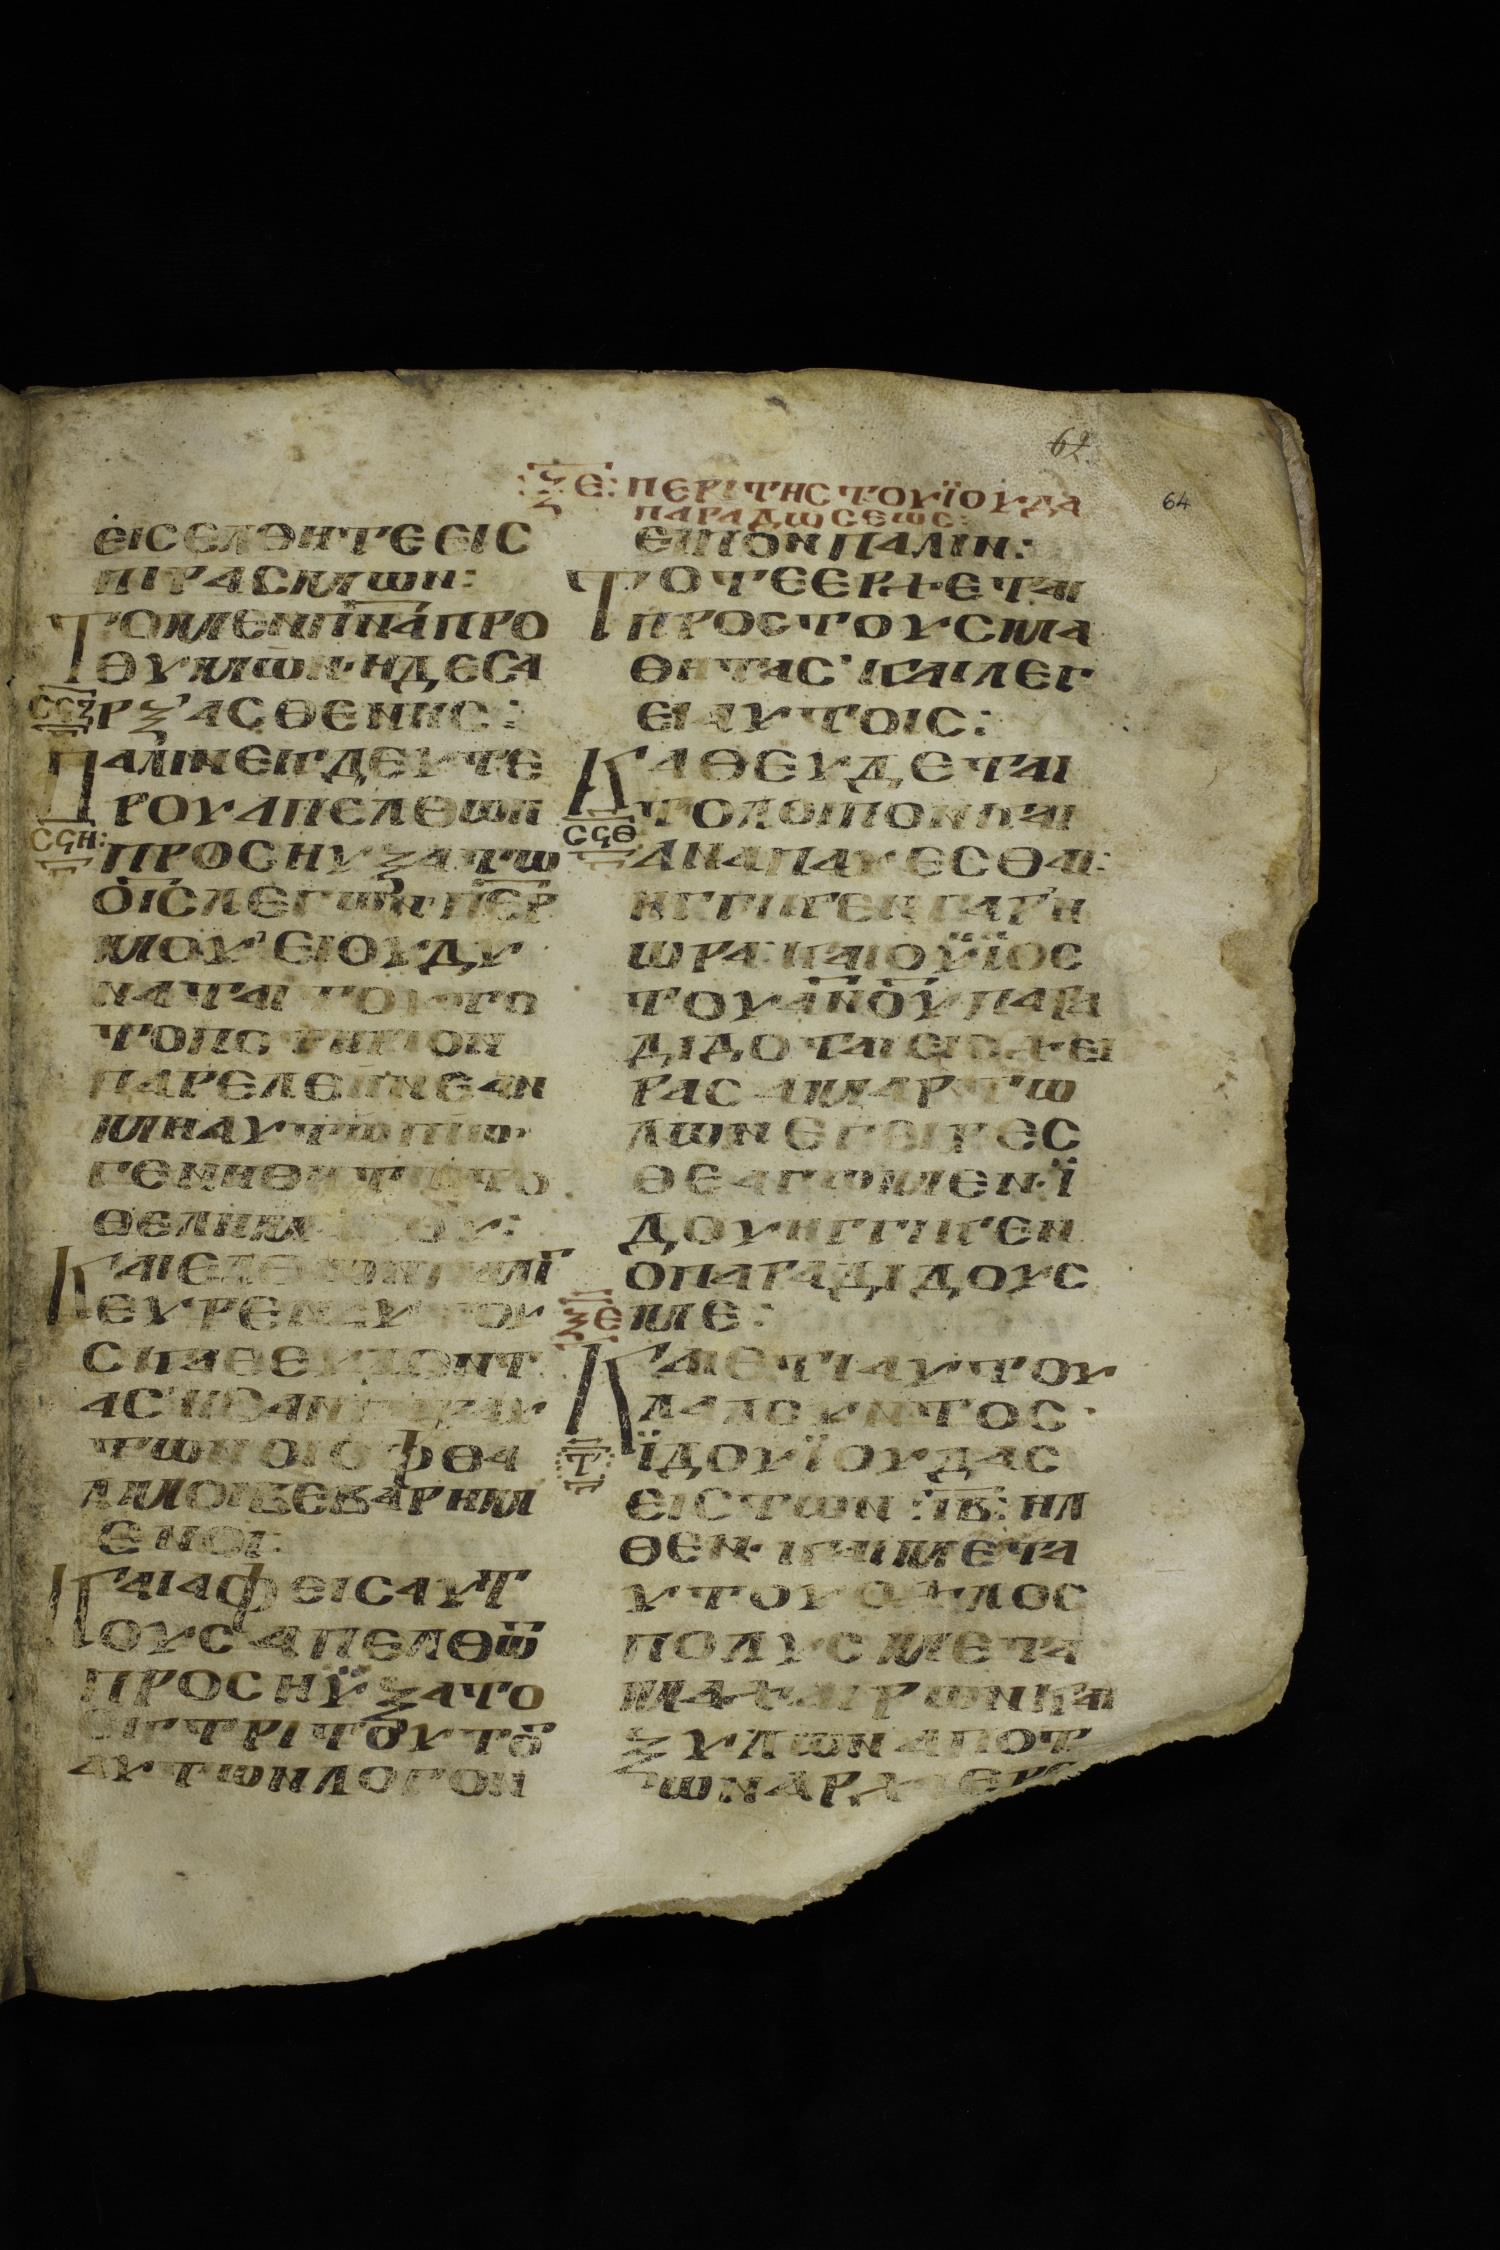 62
64
:ΞΕ: ΠΕΡΙ ΤΗΣ ΤΟΥ ΪΟΥΔΑ
ΠΑΡΑΔΩΣΕΩΣ:
ΕΙΣΕΛΘΗΤΕ ΕΙΣ
ΠΙΡΑΣΜΩΝ:
ΤΟ ΜΕΝ Π̅Ν̅Α̅ ΠΡΟ
ΘΥΜΩΝ· Η ΔΕ ΣΑ
ΡΞ' ΑΣΘΕΝΗΣ:
ΠΑΛΙΝ ΕΓ ΔΕΥΤΕ
ΡΟΥ ΑΠΕΛΘΩΝ
ΣϚΗ: ΠΡΟΣΗΥΞΑΤΩ
Ο ΙΣ ΛΕΓΩΝ· ΠΕΡ
ΜΟΥ' ΕΙ ΟΥ ΔΥ
ΝΑΤΑΙ ΤΟΥΤΟ
ΤΟ ΠΟΤΗΡΙΟΝ
ΠΑΡΕΛΕΙΝ ΕΑΝ
ΜΗ ΑΥΤΩ ΠΙΩ·
ΓΕΝΗΘΗΤΩ ΤΟ
ΘΕΛΗΜΑ ΣΟΥ:
ΚΑΙ ΕΛΘΩΝ ΠΑΛΙ
ΕΥΡΕΝ ΑΥΤΟΥ
Σ ΚΑΘΕΥΔΟΝΤ
ΑΣ' ΗΣΑΝ ΓΑΡ ΑΥ
ΤΩΝ ΟΙ ΟΦΘΑ
ΛΜΟΙ ΒΕΒΑΡΗΜ
ΕΝΟΙ:
ΚΑΙ ΑΦΕΙΣ ΑΥΤ
ΟΥΣ ΑΠΕΛΘΩ̅
ΠΡΟΣΗΫΞΑΤΟ
ΕΓ ΤΡΙΤΟΥ ΤΟ̅
ΑΥΤΩΝ ΛΟΓΟΝ
ΕΙΠΟΝ ΠΑΛΙΝ:
ΤΟΤΕ ΕΡΧΕΤΑΙ
ΠΡΟΣ ΤΟΥΣ ΜΑ
ΘΗΤΑΣ' ΚΑΙ ΛΕΓ
ΕΙ ΑΥΤΟΙΣ:
ΚΑΘΕΥΔΕΤΑΙ
ΤΟ ΛΟΙΠΟΝ ΚΑΙ
ΣϚΘ ΑΝΑΠΑΥΕΣΘΑΙ:
ΗΓΓΙΓΕΝ ΓΑΡ' Η
ΩΡΑ: ΚΑΙ Ο ΫΪΟΣ
ΤΟΥ Α̅Ν̅Ο̅Υ̅ ΠΑΡΑ
ΔΙΔΟΤΑΙ ΕΙΣ ΧΕΙ
ΡΑΣ ΑΜΑΡΤΩ
ΛΩΝ ΕΓΕΙΡΕΣ
ΘΕ ΑΓΩΜΕΝ· Ϊ
ΔΟΥ ΗΓΓΙΓΕΝ
Ο ΠΑΡΑΔΙΔΟΥΣ
ΞΕ ΜΕ:
ΚΑΙ ΕΤΙ ΑΥΤΟΥ
ΛΑΛΟΥΝΤΟΣ·
Τ ΪΔΟΥ ΪΟΥΔΑΣ
ΕΙΣ ΤΩΝ :Ι̅Β̅: ΗΛ
ΘΕΝ· ΚΑΙ ΜΕΤΑ
ΥΤΟΥ ΟΧΛΟΣ
ΠΟΛΥΣ ΜΕΤΑ
ΜΑΧΑΙΡΩΝ ΚΑΙ
ΞΥΛΩΝ ΑΠΟ Τ
ΤΩΝ ΑΡΧΙΕΡΕ